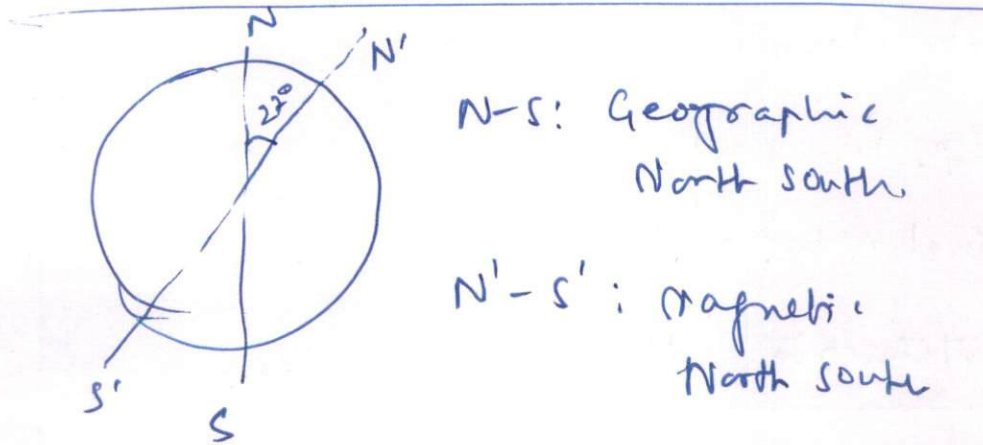 N
N'
22°
N-S: Geographic
North south
N'-S': Magnetic
North south
S'
S